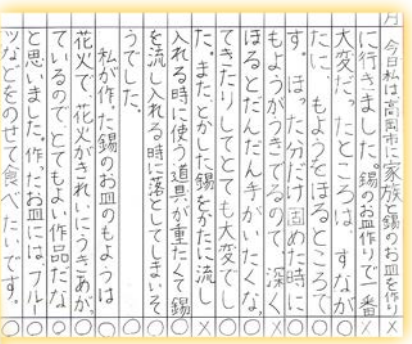 月 今日私は高岡市に家族、錫のお皿を作り ×
に行きました。錫のお皿作りで一番 ×
大変だったところは、すなが ○
たに、もようをほるところで ○
す。ほった分だけ固めた時に ○
もようがつきでるので、深く ×
ほるとだんだん手がいたくな、 ○
てきたりしてとても大変でし ○
た。またとかした錫をかたに流し ×
入れる時に使う道具が重たくて錫 ○
を流し入れる時に落としてしまいそ ○
うでした。 ○
私が作った錫のお皿のもようは ○
花火で、花火がきれいにうきあが、 ○
ているので、とてもよい作品だな ○
と思いました。作ったお皿には、フルー ○
ツなどをのせて食べたいです。 ○